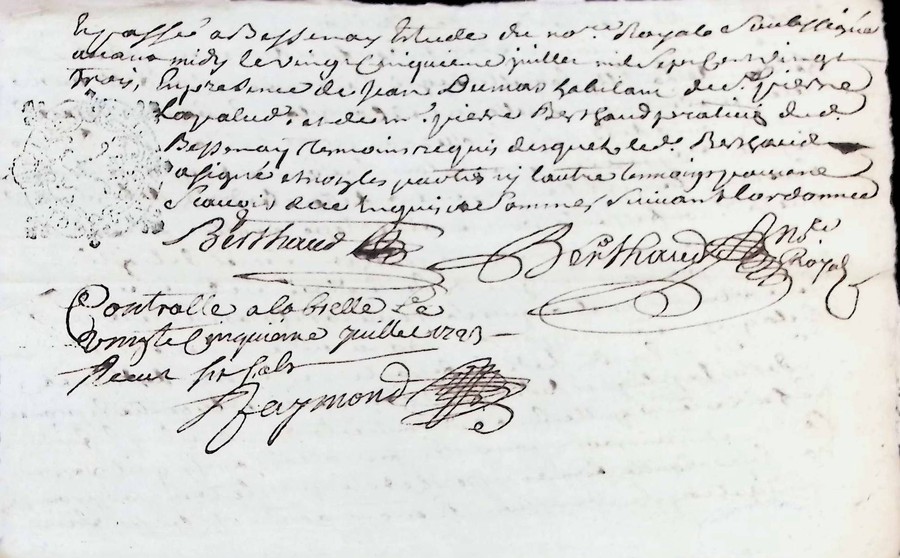 et passé a Bessenay Etude du no.re Royal Soubssigné
avant midy le vingt Cinquieme juillet mil Sept Cent vingt
trois, En presence de Jean Dumas habitant de St. pierre
Lapalud et de m.e pierre Berthaud praticien dud.
Bessenay temoins requis desquels led. Berthaud
a signé et non les parties ny lautre temoing pour ne
Scavoir de ce Enquis et Sommés Suivant lordonnce
Berthaud Berthaud no.re Royal
Controllé a labrelle Le
vingt Cinquieme juillet 1723
Receu
Raymond